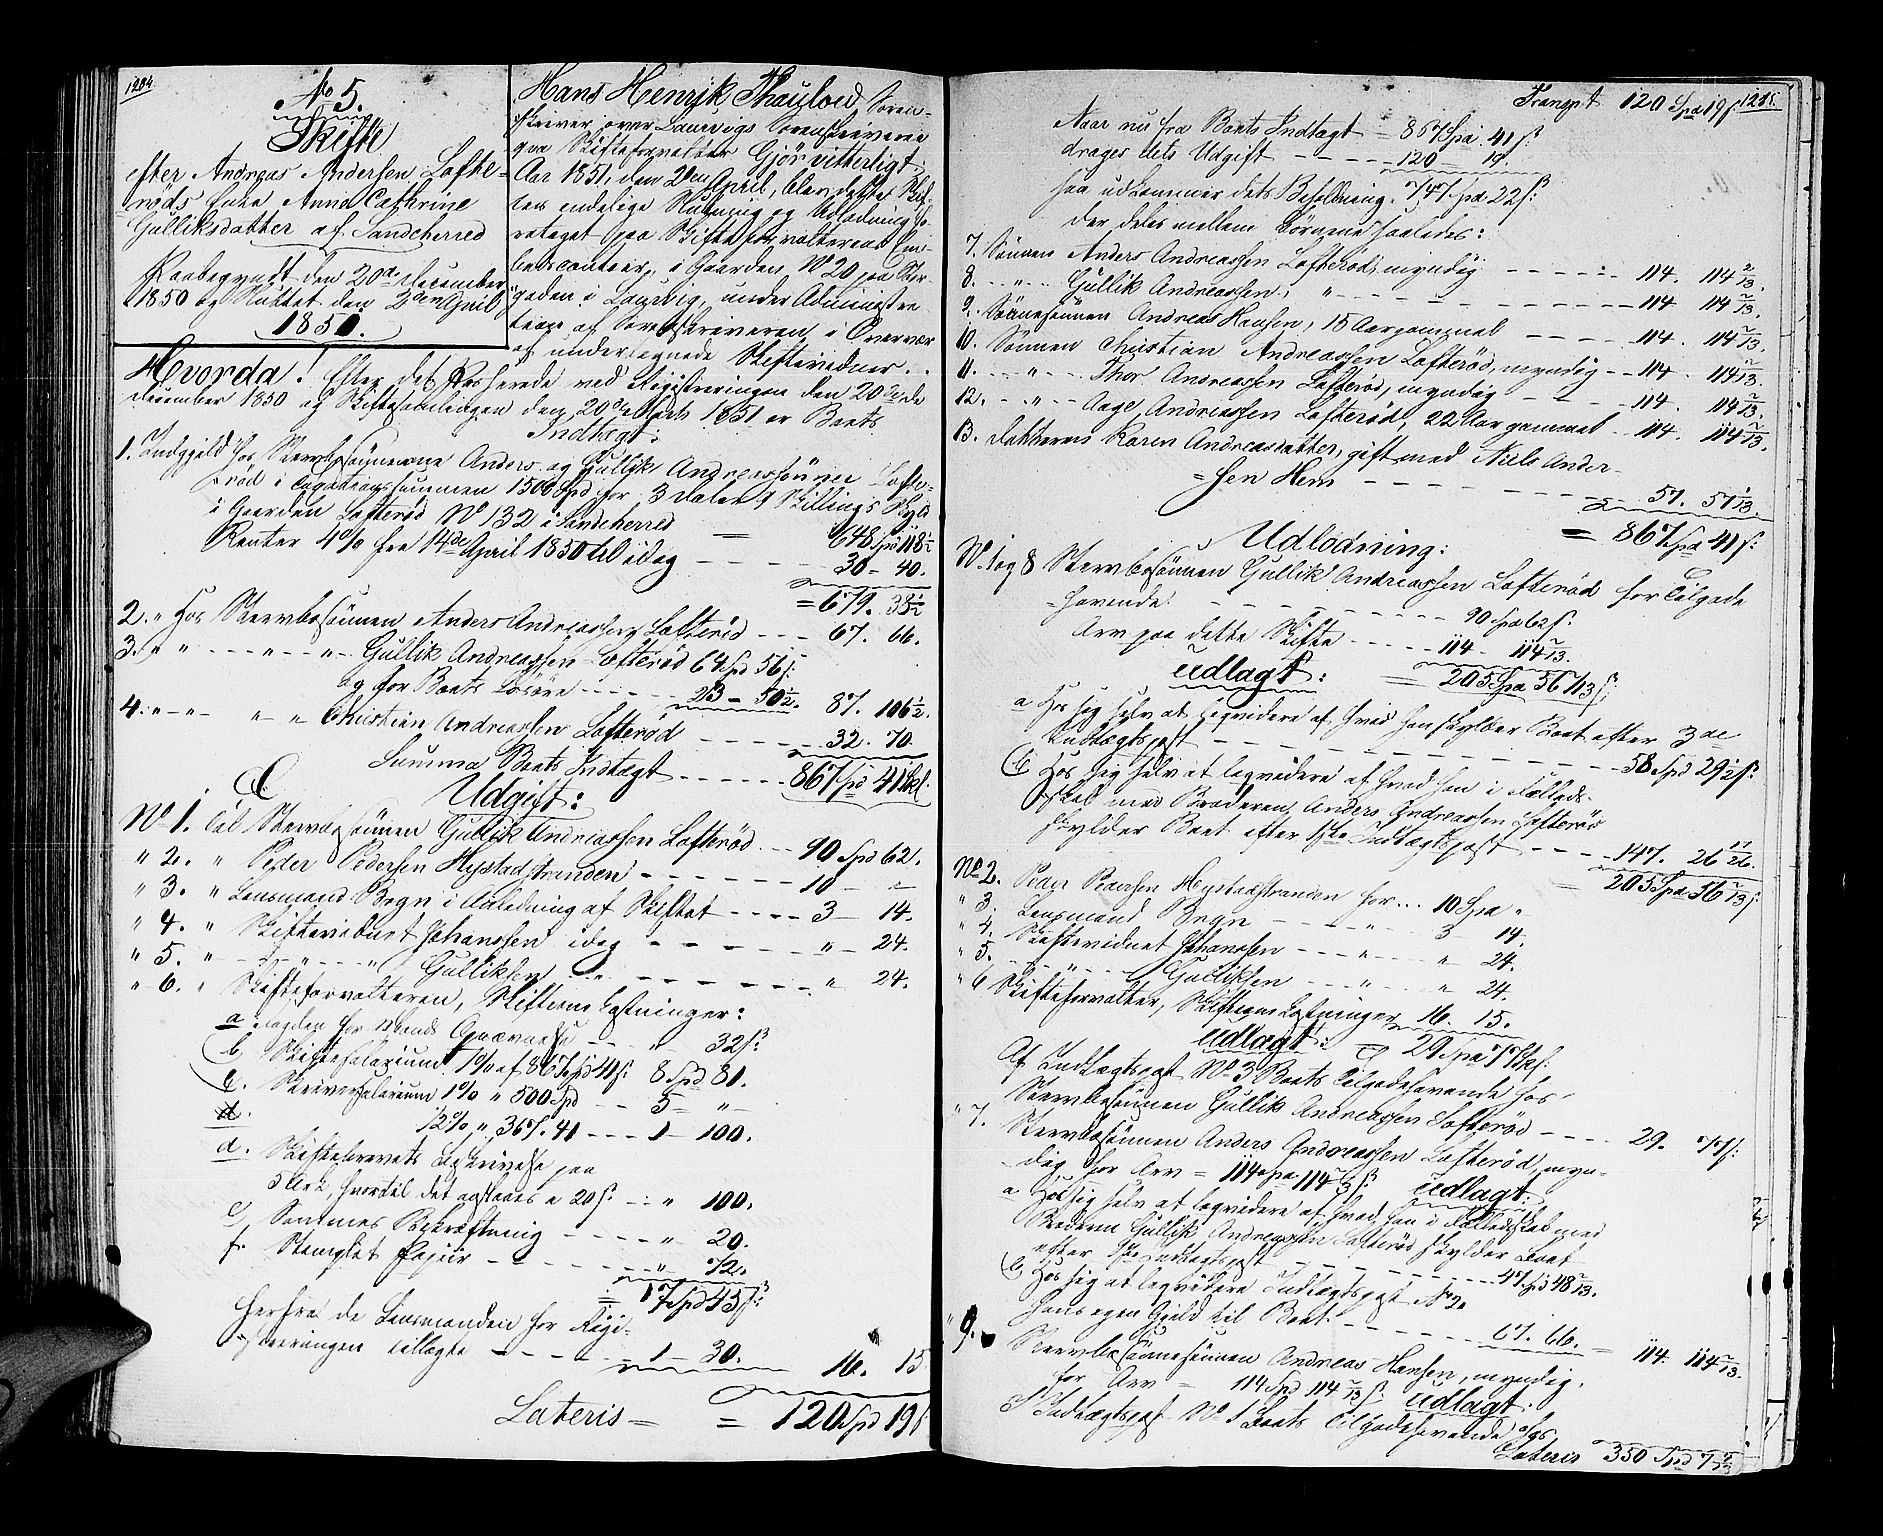 1284.
No 5.
Skifte
efter Andreas Andersen Lofte-
røds Enke Anne Cathrine
Gulliksdatter af Sandeherred
Paabegyndt den 20de December
1850 og sluttet den 2den April
1851.
Hans Henrik Thaulow, Soren-
skriver over Laurvigs Sorenskriverie
qva Skifteforvalter Gjør vitterligt:
Aar 1851, den 2den April, blev dette Skif-
tes endelige Slutning og Udlodning fo-
retaget paa Skifteforvalterens Em-
bedscontoir, i Gaarden No 20 paa Stor-
gaden i Laurvig, under Administra-
tion af Sorenskriveren i Overvær
af undertegnede Skiftevidner.
Hvorda! Efter det Passerede ved Registreringen den 20de De
December 1850 og Skiftesamlingen den 20de Marts 1851 er Boets
Indtægt:
1. Indgjeld hos Stervbosønnerne Anders og Gullik Andreassønner Lofte-
rød i Taxationssummen 1500 Spd for 3 Daler 9 Skillings Skyld
i Gaarden Lofterød No 132 i Sandeherred = 648 Spd 118½
Renter 4% fra 14de April 1850 til idag - - - 30 - 40.
= 679. 38½
2. " Hos Stervbosønnen Anders Andreassen Lofterød - - - 67. 66.
3. " " - - " - " - Gullik Andreassen Lofterød 64 Spd 56 s:
og for Boets Løsøre - - - - 23 - 50½. 87. 106½.
4. " - " - " - " Christian Andreassen Lofterød - - - - 32. 70.
Summa Boets Indtægt - - - - - 867 Spd 41 Skl.
Udgift:
No 1. Til Stervbosønnen Gullik Andreassen Lofterød - - 90 Spd 62.
" 2. " Peder Pedersen Hystadstranden - - - - - - 10 - " -
" 3. " Lensmand Bryn i Anledning af Skiftet - - - - 3 - 14.
" 4. " Skiftevidnet Johanssen idag - - - - - " - 24.
" 5. " - " - " - - " Gulliksen - - - - - - " - 24.
" 6. " Skifteforvalteren, Skiftets Omkostninger:
b Skiftesalarium 1% af 867 Spd 41 s: 8 Spd 81.
c. Skriversalarium 1% " 500 Spd - - 5 - " -
d.
½% " 367. 41 - - - 1 - 100.
d. Skiftebrevets Beskrivelse paa
5 Ark, hvortil det anslaaes a 20 s: - : " 100.
e, Sammes Bekræftning - - - - - " - 20.
f. Stemplet Papiir - - - - - - " 72.
= 17 Spd 45 s:
Herfra de Lensmanden for Regi-
streringen tillagte - - - - - 1 - 30. 16. 15
Lateris = = 120 Spd 19 s
Transpt 120 Spd 19 s 1285.
Naar nu fra Boets Indtægt = 867 Spd 41 s:
drages dets Udgift - - - - - 120 = 19.
saa udkommer dets Beholdning 747 Spd 22 s:
der deles mellem Børnene saaledes:
7. Sønnen Anders Andreassen Lofterød, myndig - - - - - 114. 114 2/13.
8. - " - Gullik Andreassen, " - - - - - - - - 114 114 2/13.
9. Sønnesønnen Andreas Hansen, 15 Aar gammel - - - - 114. 114 2/13.
10. Sønnen Christian Andreassen Lofterød, myndig - - 114. 114 2/13.
11. - - " - Thor Andreassen Lofterød, myndig - - - - 114. 114 2/13.
12. - - " - - Aage Andreassen Lofterød, 22 Aar gammel - - 114. 114 2/13.
13. Datteren Karen Andreasdatter, gift med Niels Ander-
=sen Hem - - - - - - - - - - - 57. 57 1/13.
= 867 Spd 41 s:
Udlodning:
No 1 og 8 Stervbosønnen Gullik Andreassen Lofterød for Tilgode
=havende - - - - - - 90 Spd 62 s:
Arv paa dette Skifte - - - - 114 - 114 2/13.
udlagt: = 205 Spd 56 2/13 s:
a Hos sig selv at liqvidere af hvad han skylder Boet efter 3de
Indtægtspost - - - - - - - - - - 58 Spd 29½ s:
b Hos sig selv at liqvidere af hvad han i Fælleds-
skab med Broderen Anders Andreassen Lofterød
skylder Boet efter 1ste Indtægtspost - - - - 147. 26 17/26.
= 205 Spd 56 2/13 s:
No 2. Peder Pedersen Hystadstranden for - - - 10 Spd "
" 3. Lensmand Bryn - - - - " - 3 14.
" 4. Skiftevidnet Johanssen - - - " - " 24.
" 5. - - " - - Gulliksen - - - " - " 24.
" 6 Skifteforvalter, Skiftets Omkostninger 16. 15.
udlagt: = 29 Spd 77 Skl.
Af Indtægtspost No 3 Boets Tilgodehavende hos
Stervbosønnen Gullik Andreassen Lofterød - - - - 29. 77 s:
" 7. Stervbosønnen Anders Andreassen Lofterød, myn-
dig, for Arv = 114 Spd 114 2/13 s: udlagt:
a Hos sig selv at liqvidere af hvad han i Fælledsskab med
Broderen Gullik Andreassen Lofterød skylder Boet
efter 1ste Indtægtspost - - - - - - - 47 Spd 48 2/13.
b Hos sig at liqvidere Indtægtspost No 2.
hans egen Gjeld til Boet - - - - - - 67. 66. = 114. 114 2/13.
" 9. Stervbosønnesønnen Andreas Hansen, myndig,
for Arv = 114 Spd 114 2/13 s: udlagt:
I Indtægtspost No 1 Boets Tilgodehavende hos
Lateris 350 Spd 7 2/13